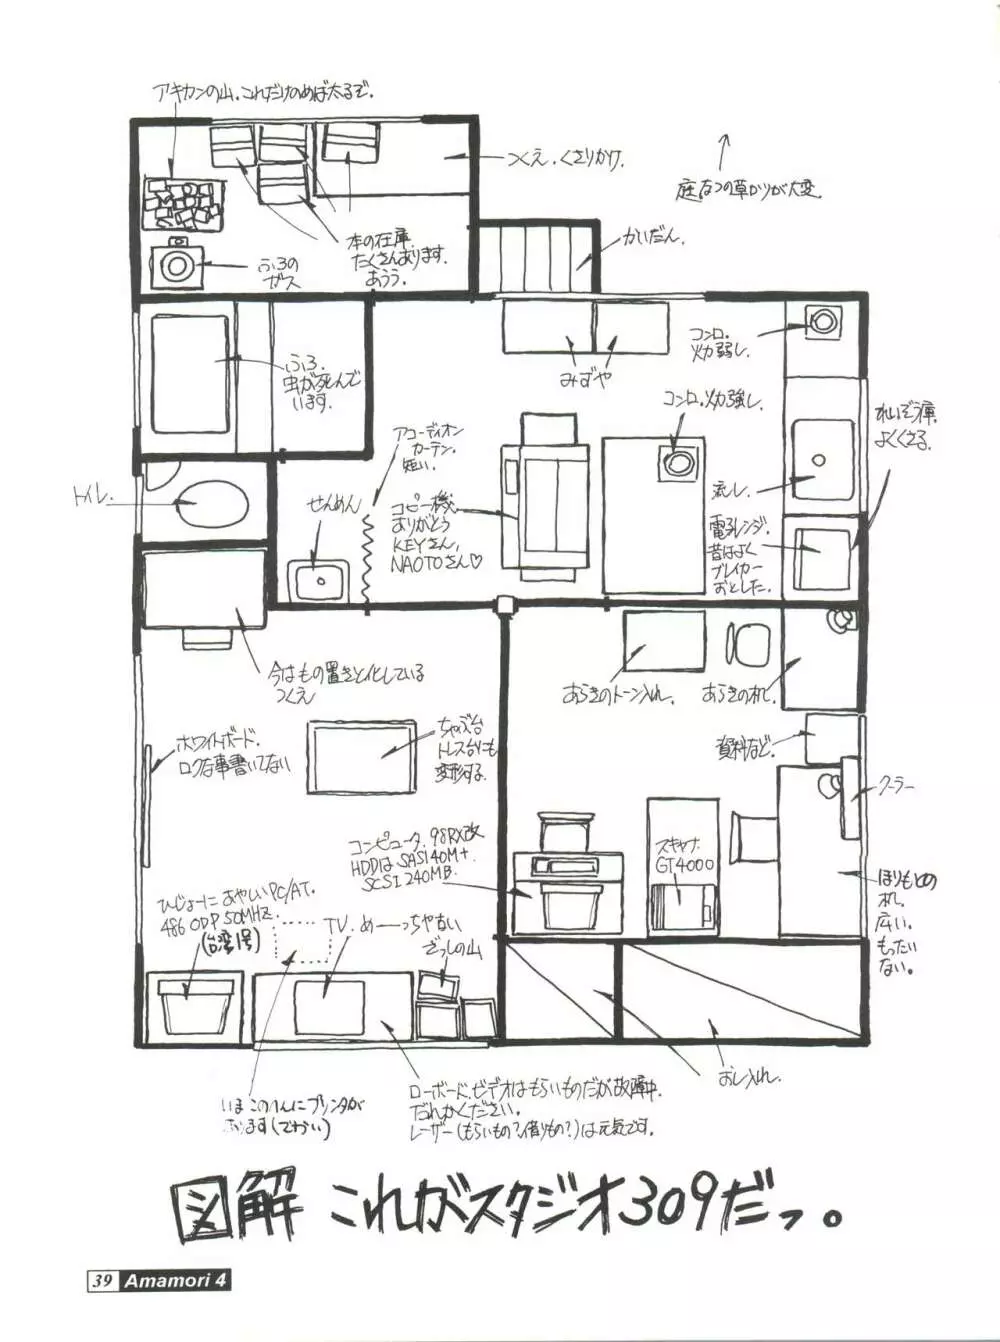 アキカンの山.これだけのめば太るぞ.
つくえ.くさりかけ.
庭.なつの草かりが大変.
本の在庫.
たくさんあります.
あうう.
かいだん.
ふろの
ガス
ふろ.
虫が死んで
います.
みずや
コンロ.
火力弱し.
コンロ.火力強し.
れいぞう庫.
よくくさる.
アコーディオン
カーテン.
短い.
トイレ.
せんめん
コピー機.
ありがとう
KEYさん,
NAOTOさん♡
流し.
電子レンジ.
昔はよく
ブレイカー
おとした.
今はもの置きと化している
つくえ
あらきのトーン入れ.
あらきの机.
ホワイトボード.
ロクな事書いてない
ちゃぶ台
トレス台にも
変形する.
資料など.
クーラー
コンピュータ.98RX改
HDDはSASI40M+
SCSI 240MB.
スキャナ
GT4000
ひじょーにあやしいPC/AT.
486 ODP 50MHz.
(台湾1号)
TV.めーっちゃない
ざっしの山
ほりもとの
机.
広い.
もったい
ない。
おし入れ.
いまこのへんにプリンタが
あります(でかい)
ローボード.ビデオはもらいものだが故障中.
だれかください.
レーザー(もらいもの?借りもの?)は元気です.
図解 これがスタジオ309だっ。
39 Amamori 4